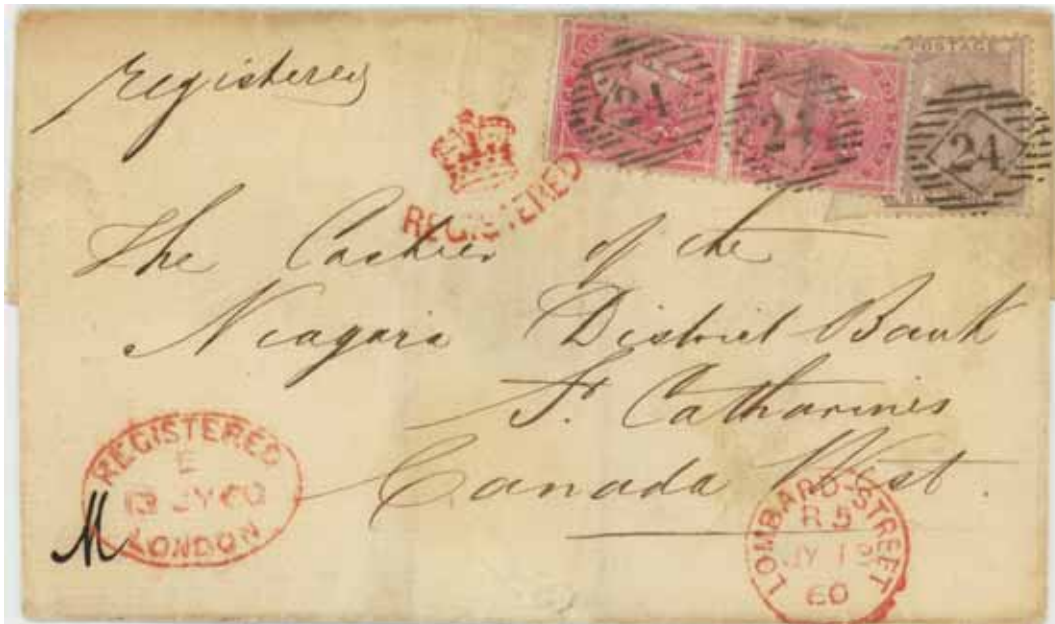 Registered
POSTAGE
24
24
24
REGISTERED
The Cashier of the
Niagara District Bank
St. Catharines
Canada West.
REGISTERED
E
13 JY 60
LONDON
M
LOMBARD-STREET
R 5
JY 1
60